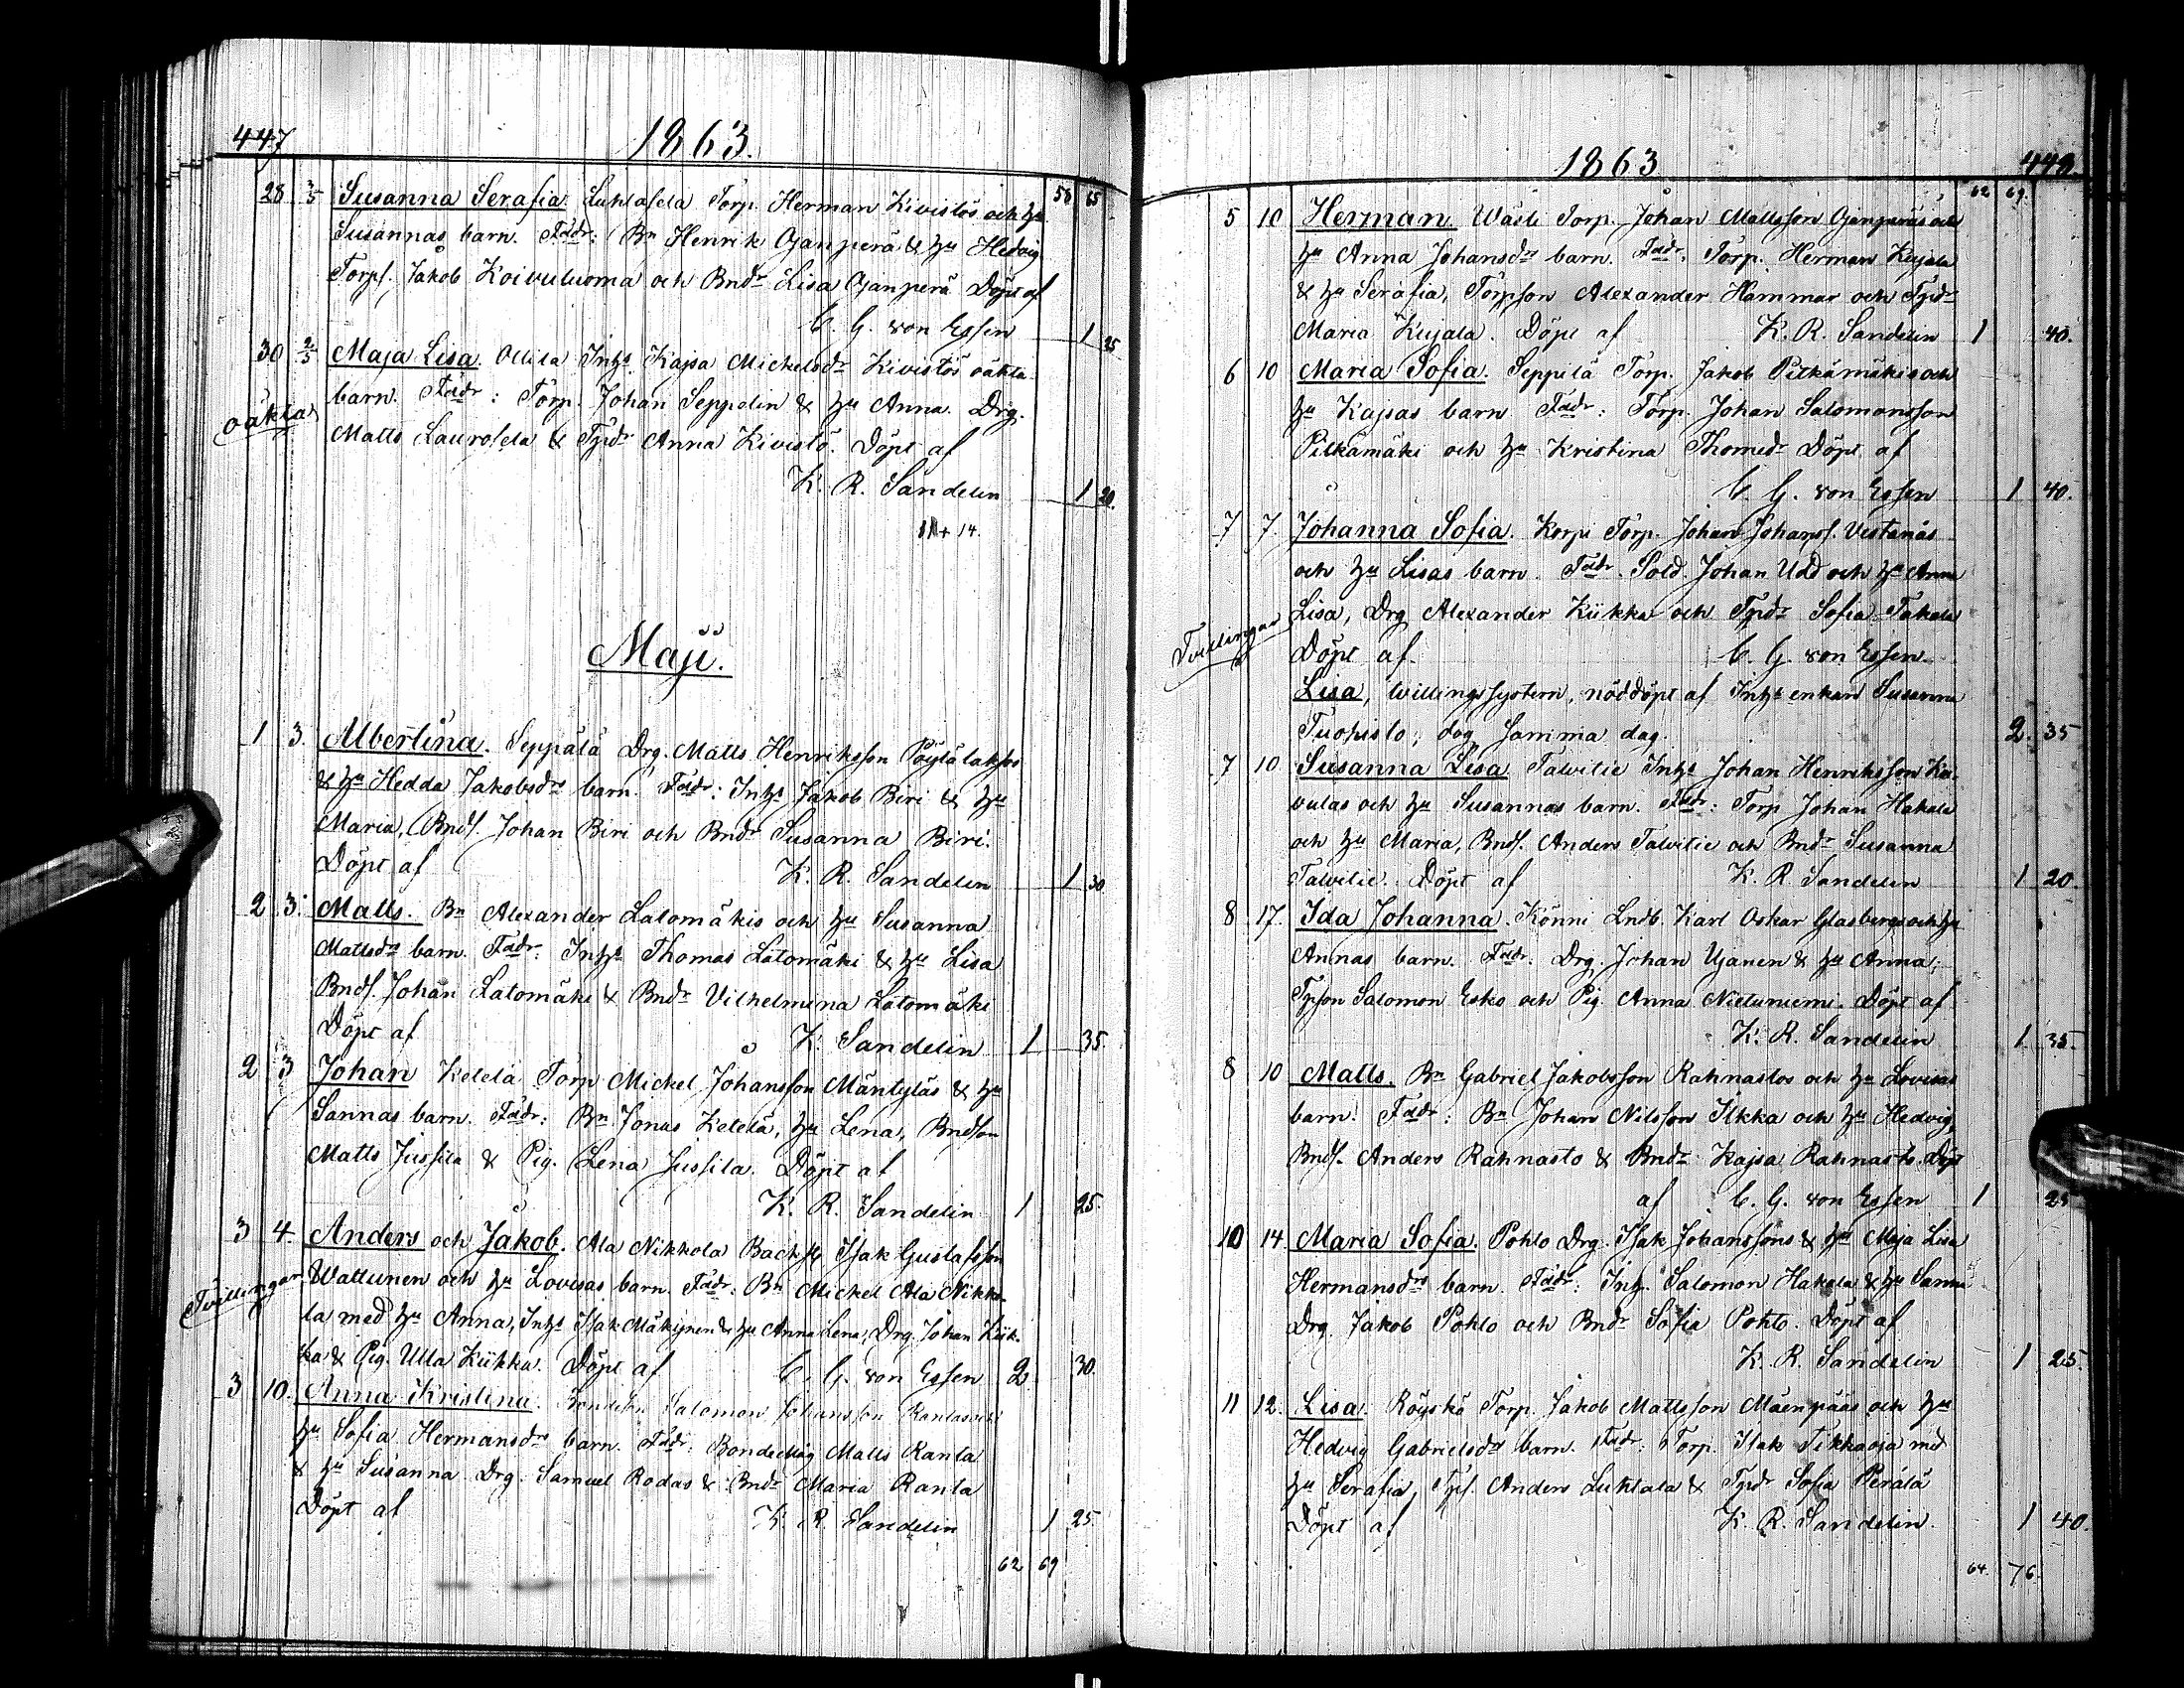 447 1863.
58 65
28 3/5 Susanna Serafia. Luhtasela Torp. Herman Kivistös och hu
Susannas barn. Fadr: Bn Henrik Ojanperä & hu Hedvig
Torps. Jakob Koivuluoma och Bndr Lisa Ojanperä Döpt af
C. G. von Essen 1 25
30 2/5 Maja Lisa. Ollila Inhs Kajsa Mickelsdr Kivistös oäkta
oäkta
barn. Fadr: Torp. Johan Seppelin & hu Anna. Drg.
Matts Laurosela & Tpdr Anna Kivistö. Döpt af
K. R. Sandelin 1 20.
11+14.
Maji.
1 3. Albertina. Seppälä Drg. Matts Henriksson Pöytälaksos
& hu Hedda Jakobsdrs barn. Fadr: Inhs Jakob Biri & hu
Maria, Bnds. Johan Biri och Bndr Susanna Biri.
Döpt af K. R. Sandelin 1 30
2 3. Matts. Bn Alexander Latomäkis och hu Susanna
Mattsdrs barn. Fadr: Inhs Thomas Latomäki & hu Lisa
Bnds. Johan Latomäki & Bndr Vilhelmina Latomäki
Döpt af K. Sandelin 1 35.
2 3 Johan Ketelä Torp Mickel Johansson Mäntyläs & hu
Sannas barn. Fadr: Bn Jonas Ketelä, hu Lena, Bndson
Matts Jussila & Pig. Lena Jussila. Döpt af
K. R. Sandelin 1 25.
3 4. Anders och Jakob. Ala Nikkola Backst Isak Gustafsson
Tvillingar
Wattunen och hu Lovisas barn. Fadr: Bn Mickel Ala Nikko-
la med hu Anna, Inhs Isak Mäkynen & hu Anna Lena, Drg. Johan Kiik-
ka & Pig. Ulla Kiikka. Döpt af C. G. von Essen 2 30.
3 10. Anna Kristina. Bondeson Salomon Johansson Rantas och
hu Sofia Hermansdrs barn. Fadr: Bondemåg Matts Ranta
& hu Susanna Drg. Samuel Rodas & Bndr Maria Ranta
Döpt af K. R. Sandelin 1 25
62 69
1863 448.
62 69.
5 10 Herman. Wäsli Torp. Johan Mattsson Ojanperäs och
hu Anna Johansdrs barn. Fadr: Torp. Herman Kujala
& hu Serafia, Torpson Alexander Hammar och Tpdr
Maria Kujala. Döpt af K. R. Sandelin 1 40.
6 10 Maria Sofia. Seppilä Torp. Jakob Pitkämäkis och
hu Kajsas barn Fadr: Torp. Johan Salomonsson
Pitkämäki och hu Kristina Thomedr Döpt af
C. G. von Essen 1 40.
7 7. Johanna Sofia. Korpi Torp. Johan Johanss. Vestanäs
och hu Lisas barn. Fadr. Sold. Johan Udd och hu Anna
Lisa, Drg Alexander Kiikka och Tpdr Sofia Takala
Tvillingar
Döpt af C. G. von Essen
Lisa, tvillingssystern, nöddöpt af Inhs enkan Susanna
Tuohisto, dog samma dag. 2. 35
7 10 Susanna Lisa Talvitie Inhs Johan Henriksson Koi-
vulas och hu Susannas barn. Fadr: Torp Johan Hakala
och hu Maria, Bnds. Anders Talvitie och Bndr Susanna
Talvitie. Döpt af K. R Sandelin 1 20.
8 17. Ida Johanna. Könni Lndb. Karl Oskar Glasbergs och hu
Annas barn. Fadr: Drg. Johan Ujanen & hu Anna;
Tpson Salomon Esko och Pig. Anna Nietuniemi. Döpt af
K. R. Sandelin 1. 35.
8 10 Matts. Bn Gabriel Jakobsson Rahnastos och hu Lovisas
barn. Fadr: Bn Johan Nilsson Ilkka och hu Hedvig,
Bnds. Anders Rahnasto & Bndr Kajsa Rahnasto. Döpt
af C. G. von Essen 1 25
10 14 Maria Sofia. Pohto Drg. Isak Johanssons & hu Maja Lisa
Hermansdrs barn. Fadr: Inhs. Salomon Hakala & hu Sanna
Drg. Jakob Pohto och Bndr Sofia Pohto. Döpt af
K. R. Sandelin 1 25.
11 12. Lisa. Röyskö Torp. Jakob Mattsson Mäenpääs och hu
Hedvig Gabrielsdrs barn. Fadr: Torp. Isak Tikkaoja med
hu Serafia, Tps. Anders Luhtala & Tpdr Sofia Perälä
Döpt af K. R. Sandelin. 1 40.
64. 76.